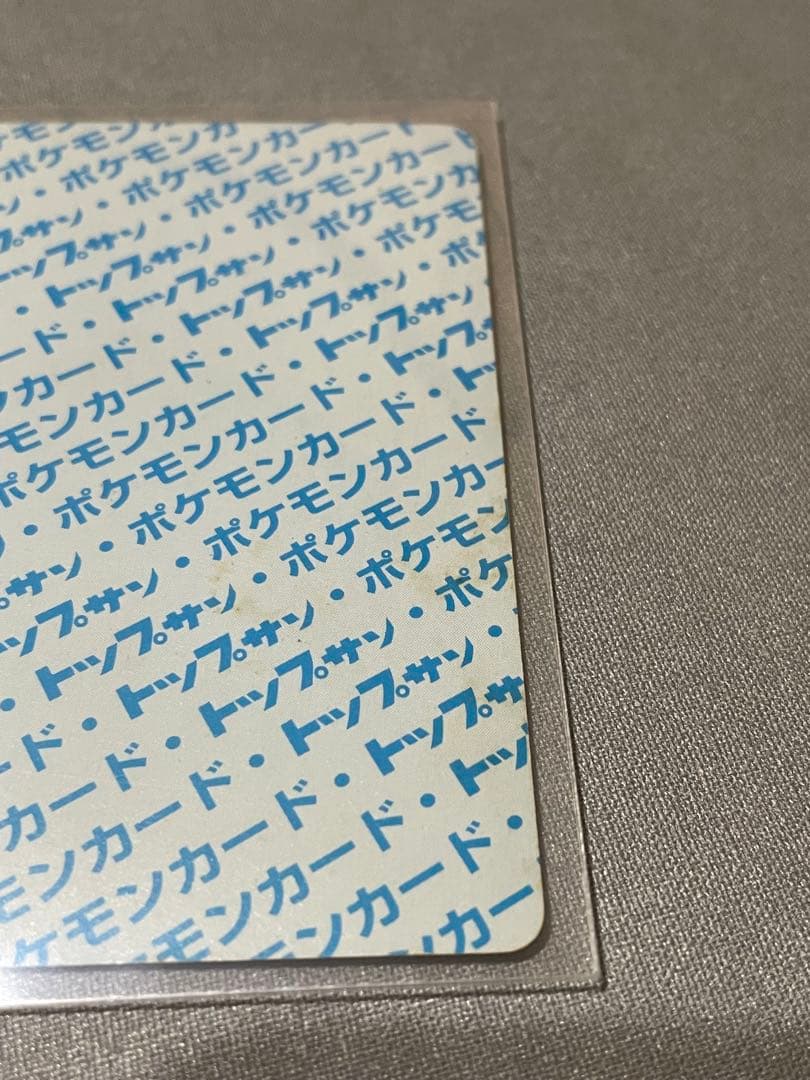 ケモンカ
・ポケモンカー
プサン・ポケモンカード
ップサン・ポケモンカー
・トップサン・ポケモンカ
ード・トップサン・ポケモ
カード・トップサン・ポ
モンカード・トップサン
ポケモンカード・トップサ
・ポケモンカード・ト
サン・ポケモンカード
ップサン・ポケモンカー
・トップサン・ポケモン
ド・トップサン・ポケ
カード・トップサン・
モンカード・トップサ
ケモンカード・トッ
モンカード・
カー